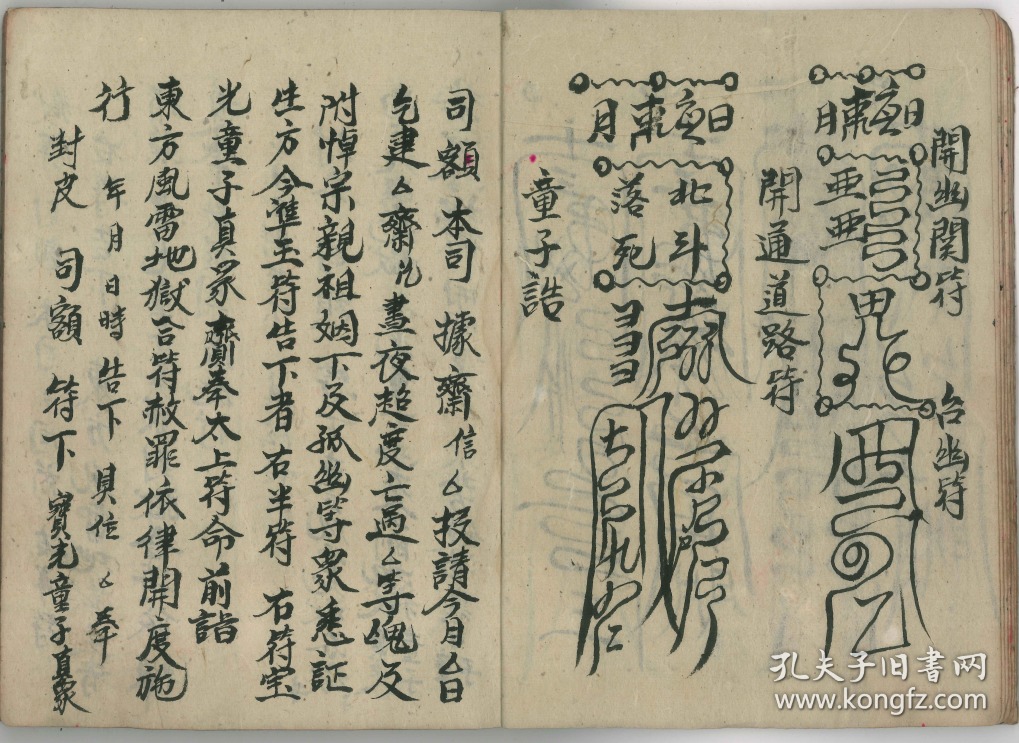 開幽関符　台幽符
開通道路符
北斗
落死
童子誥
司額　本司　據齋信厶投請今月厶日
乞建厶齋凡晝夜超度亡過厶等魂及
附悼宗親祖姻下及孤幽等眾悉証
生方今準玉符告下者右半符　右符宝
光童子真眾齎奉太上符命前詣
東方風雷地獄合符赦罪依律開度施
行　年月日時告下　具位　厶奉
封皮　司額　符下　寶光童子真眾
孔夫子旧书网
www.kongfz.com